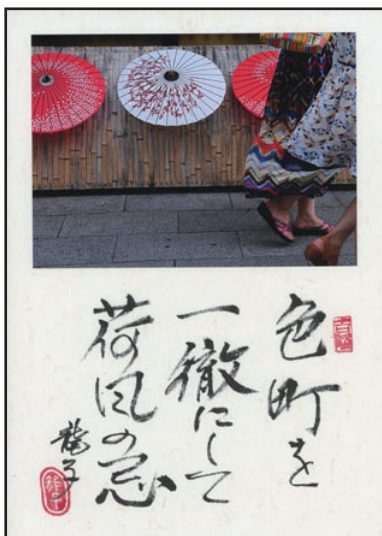 色町を
一徹にして
荷風の忌
龍子